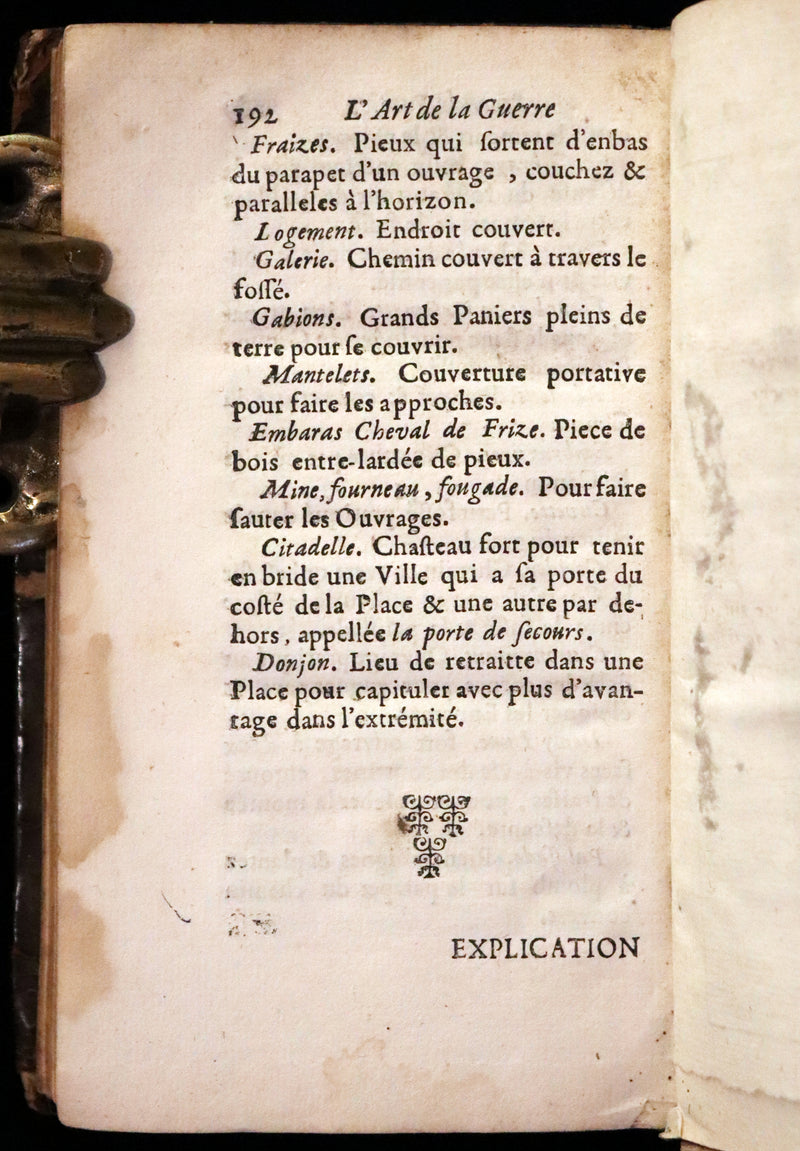 192 L'Art de la Guerre
Fraizes. Pieux qui ſortent d'enbas
du parapet d'un ouvrage , couchez &
paralleles à l'horizon.
Logement. Endroit couvert.
Galerie. Chemin couvert à travers le
foſſé.
Gabions. Grands Paniers pleins de
terre pour ſe couvrir.
Mantelets. Couverture portative
pour faire les approches.
Embaras Cheval de Frize. Piece de
bois entre-lardée de pieux.
Mine, fourneau , fougade. Pour faire
ſauter les Ouvrages.
Citadelle. Chaſteau fort pour tenir
en bride une Ville qui a ſa porte du
coſté de la Place & une autre par de-
hors , appellée la porte de ſecours.
Donjon. Lieu de retraitte dans une
Place pour capituler avec plus d'avan-
tage dans l'extrémité.
EXPLICATION